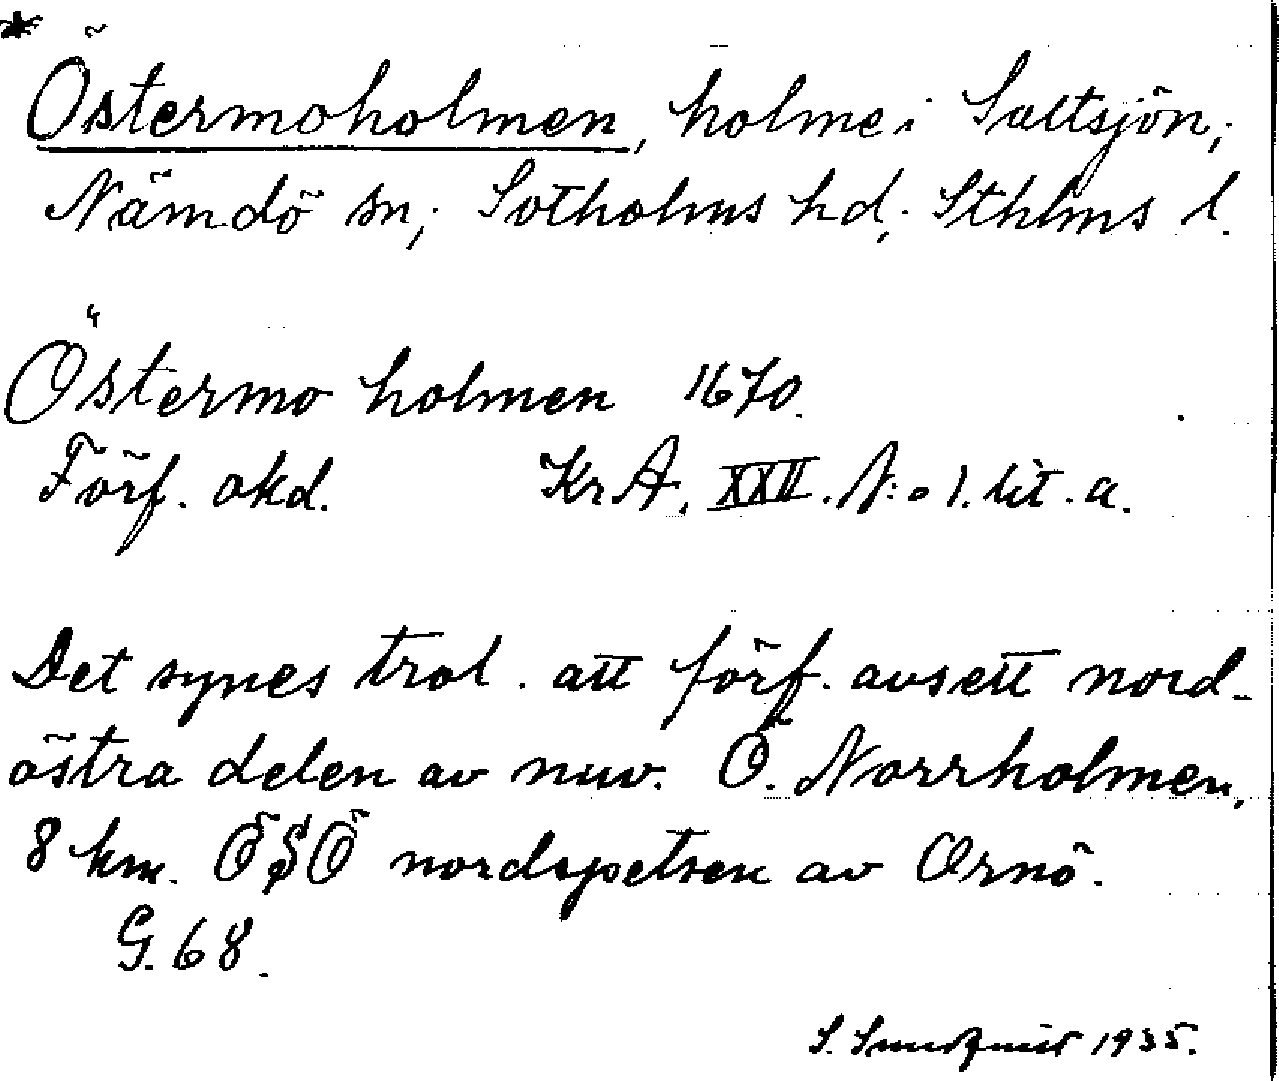 * Östermoholmen, holme i Saltsjön,
Nämdö sn, Sotholms hd, Sthlms l.
Östermo holmen 1670.
Förf. okd. KrA. XXII. N:o 1. lit. a.
Det synes trol. att förf. avsett nord-
östra delen av nuv. Ö. Norrholmen,
8 km. ÖSÖ nordspetsen av Ornö.
G. 68.
S. 1935.